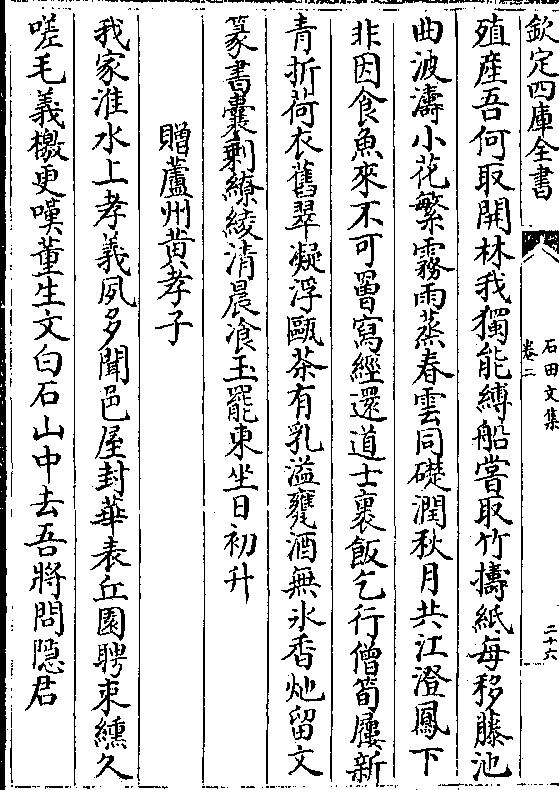 欽定四庫全書
石田文集
卷二
二十六
殖産吾何取開林我獨能縛船嘗取竹擣紙每移藤池
曲波濤小花繁霧雨蒸春雲同礎潤秋月共江澄鳳下
非因食魚來不可罾寫經還道士裹飯乞行僧筍屨新
青折荷衣舊翠凝浮甌茶有乳溢甕酒無氷香灺留文
篆書囊剩繚綾清晨飡玉罷東坐日初升
贈蘆州黄孝子
我家淮水上孝義夙多聞邑屋封華表丘園聘束纁久
嗟毛義檄更嘆董生文白石山中去吾將問隠君